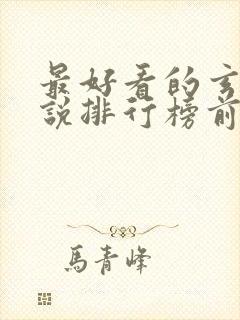 最好看的玄
說排行榜前
馬青峰